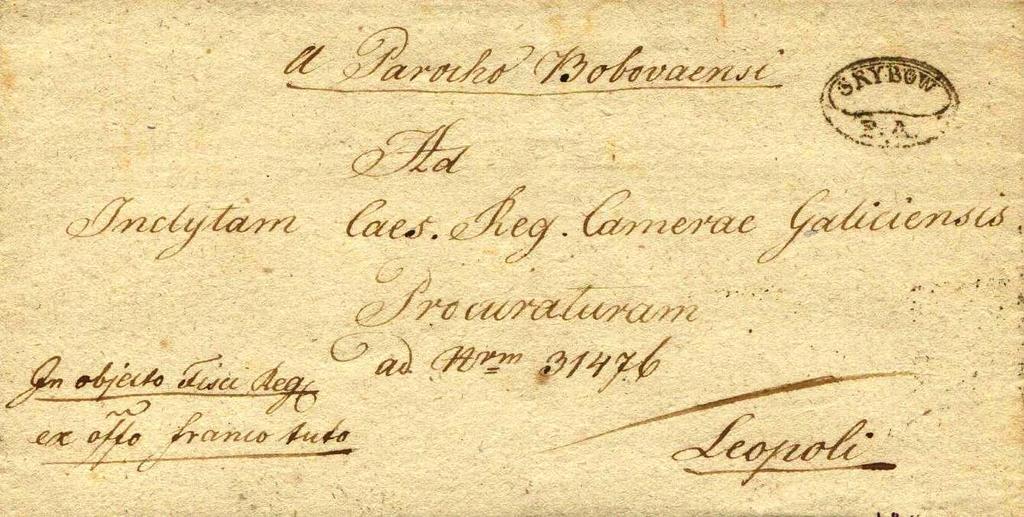 a Parocho Bobovaensi
SRYBOW
P. A.
Ad
Inclytam Caes. Reg. Camerae Galiciensis
Procuraturam
ad Nrm 31476
In objecto Fisci Reg
ex offo franco tuto
Leopoli